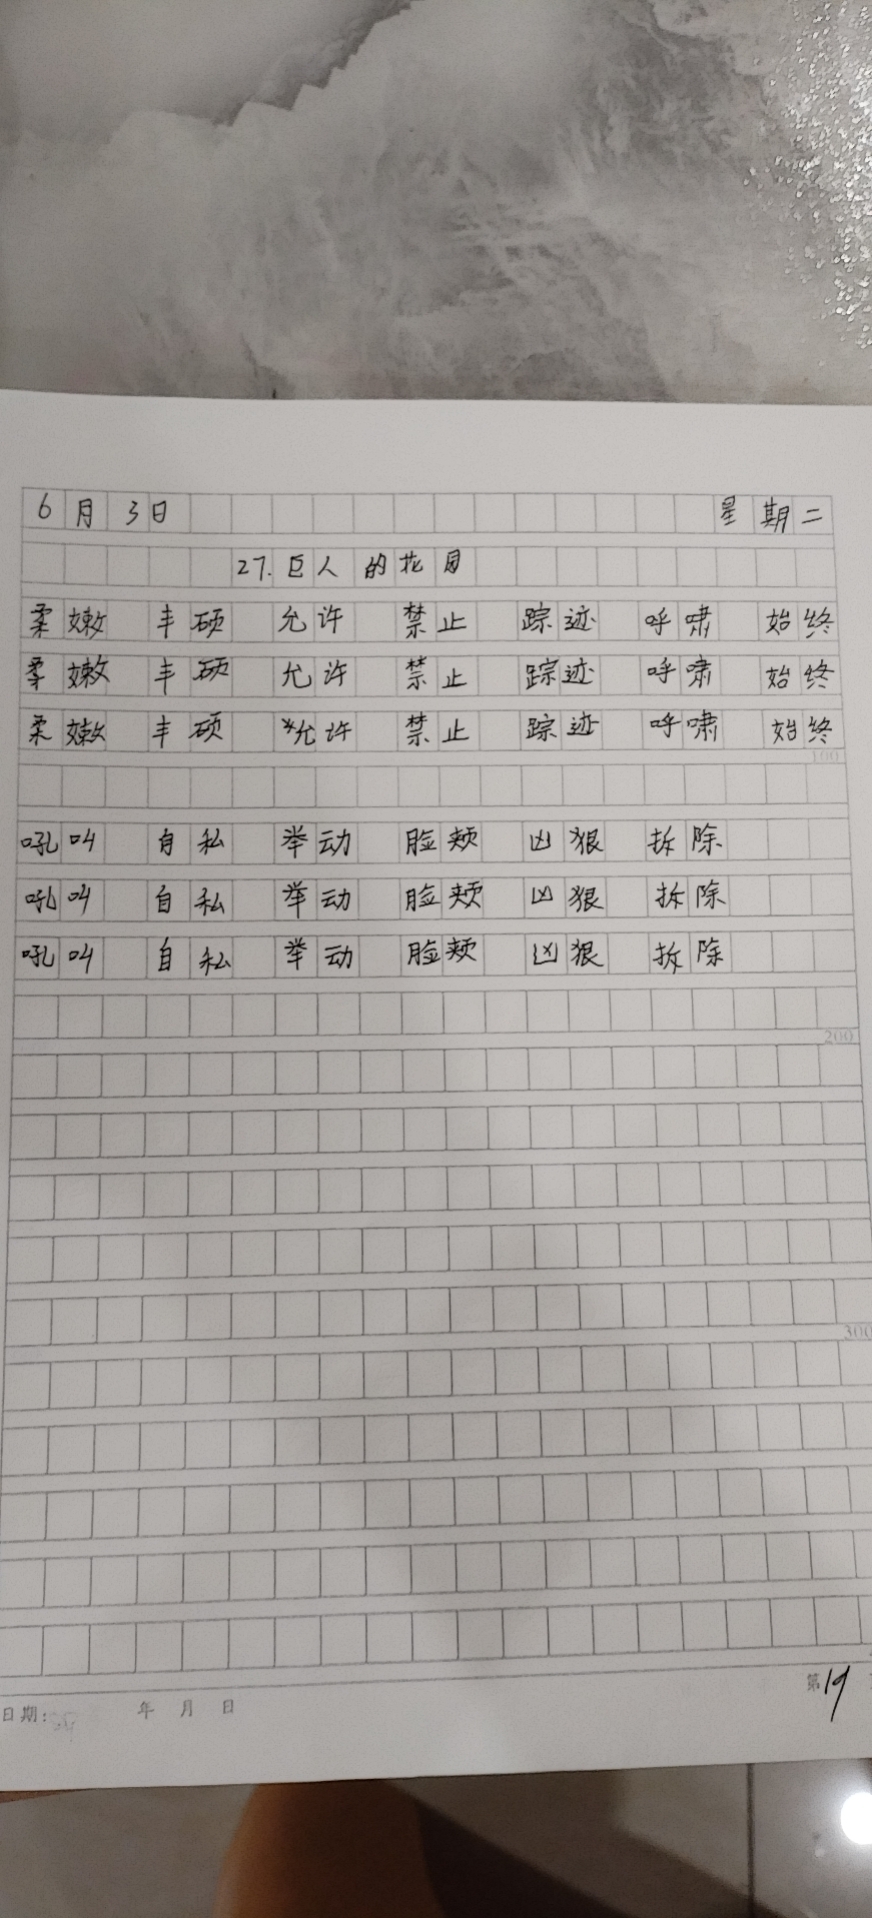 6月3日 星期二
27.巨人的花园
柔嫩 丰硕 允许 禁止 踪迹 呼啸 始终
柔嫩 丰硕 允许 禁止 踪迹 呼啸 始终
柔嫩 丰硕 允许 禁止 踪迹 呼啸 始终
100
吼叫 自私 举动 脸颊 凶狠 拆除
吼叫 自私 举动 脸颊 凶狠 拆除
吼叫 自私 举动 脸颊 凶狠 拆除
200
300
第19
日期: 年 月 日